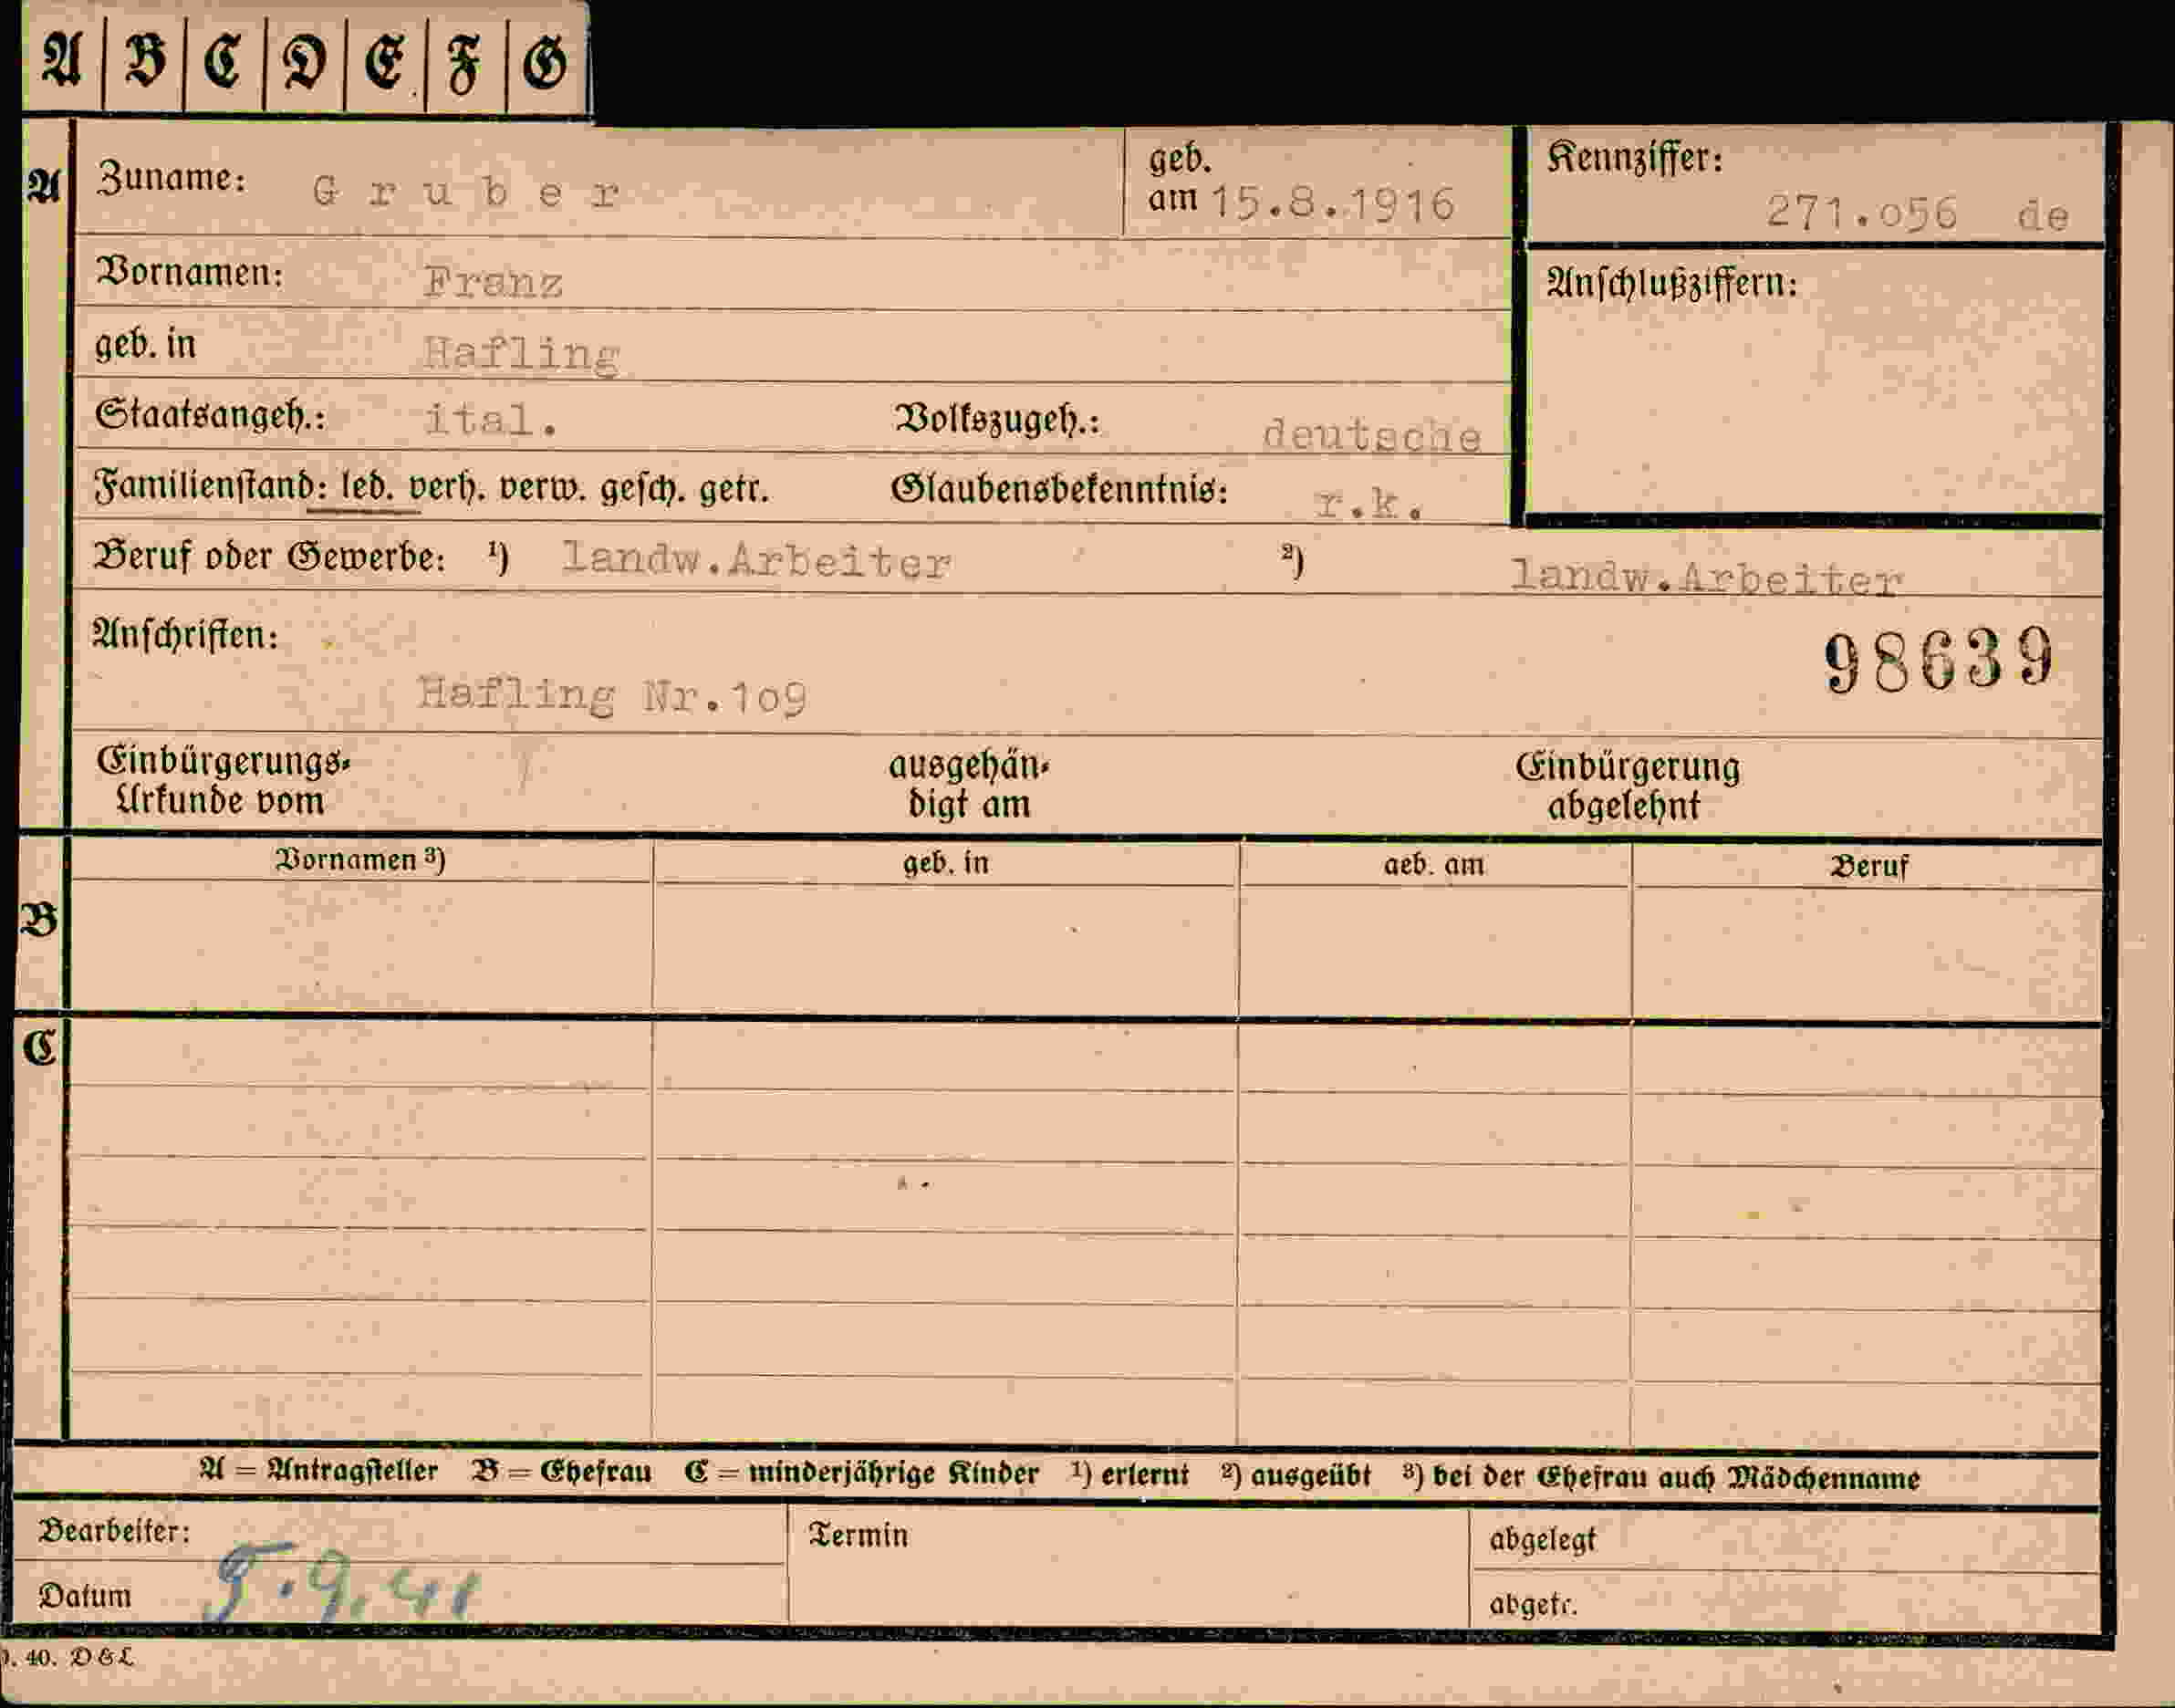 A B C D E F G
A Zuname: Gruber geb. am 15.8.1916 Kennziffer: 271.056 de
Vornamen: Franz Anschlußziffern:
geb. in Hafling
Staatsangeh.: ital. Volkszugeh.: deutsche
Familienstand: led. verh. verw. gesch. getr. Glaubensbekenntnis: r.k.
Beruf oder Gewerbe: 1) landw.Arbeiter 2) landw.Arbeiter
Anschriften: 98639
Hafling Nr.109
Einbürgerungs- ausgehän- Einbürgerung
Urkunde vom digt am abgelehnt
Vornamen 3) geb. in geb. am Beruf
B
C
A = Antragsteller B = Ehefrau C = minderjährige Kinder 1) erlernt 2) ausgeübt 3) bei der Ehefrau auch Mädchenname
Bearbeiter: Termin abgelegt
Datum 5.9.41 abgetr.
40. D&L